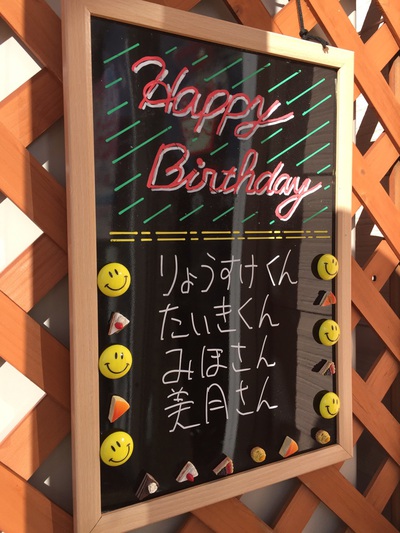 Happy
Birthday
りょうすけくん
たいきくん
みほさん
美月さん